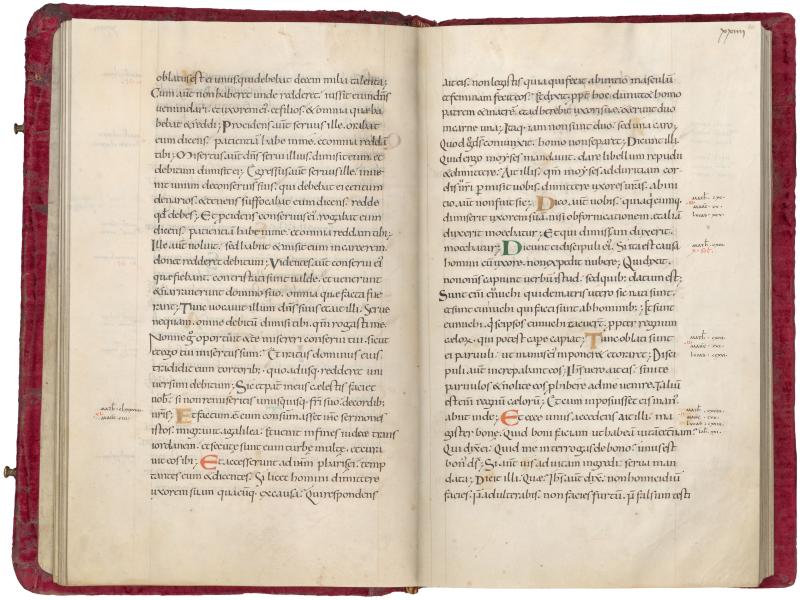 oblatus est ei unus qui debebat decem milia talenta;
Cum aut̄ non haberet unde redderet. iussit eum dn̄s
uenundari. et uxorem ei᷒. et filios. & omnia quæ ha
bebat. & reddi; Procidens aut̄ seruus ille. orabat
eum dicens. patientiā habe in me. et omnia reddā
tibi; Misertus aut̄ dn̄s serui illius. dimisit eum. et
debitum dimisit ei; Egressus aut̄ seruus ille. inue
nit unum de conseruis suis. qui debebat ei centum
denarios. et tenens suffocabat eum dicens. redde
qd̄ debes; Et procidens conseruus ei᷒. rogabat eum
dicens. patientiā habe in me. et omnia reddam tibi;
Ille aut̄ noluit. sed abiit. & misit eum in carcerem.
donec redderet debitum; Videntes aut̄ conserui ei᷒
quæ fiebant. contristati sunt ualde. et uenerunt
& narrauerunt domino suo. omnia quæ facta fue
rant; Tunc uocauit illum dn̄s suus. et ait illi. Serue
nequam. omne debitum dimisi tibi. qm̄ rogasti me.
Nonne g̊ oportuit & te misereri conserui tui. sicut
et ego tui misertus sum; Et iratus dominus eius.
tradidit eum tortorib;. quoadusq; redderet uni
uersum debitum; Sic et pat̄ meus cælestis faciet
uob̄. si non remiseritis unusquisq; fr̄i suo. de cordib;
uris; Et factum. ē cum consummasset ihc̄ sermones
istos. migrauit a galilea. & uenit in fines iudeæ trans
iordanen. et secutæ sunt eum turbę multę. et cura
uit eos ibi; Et accesserunt ad eum pharisei. temp
tantes eum & dicentes. Si licet homini dimittere
uxorem suam quacūq; ex causa. Qui respondens
xxxiiii
ait eis. non legistis quia qui fecit ab initio masculū
et feminam fecit eos. & dixit. ppt̄ hoc dimittet homo
patrem et matrē. et adherebit uxori suæ. et erunt duo
in carne una; Itaq; iam non sunt duo. sed una caro;
Quod g̊ ds̄ coniunxit. homo non separet; Dicunt illi.
Quid ergo moyses mandauit. dare libellum repudii
& dimittere; Ait illis. qm̄ moyses ad duritiam cor
dis ur̄i. pmisit uobis dimittere uxores ur̄as. ab ini
tio aut̄ non fuit sic; Dico. aut̄ uobis. quia quicumq;
dimiserit uxorem suā. nisi ob fornicationem. et aliā
duxerit mœchatur; Et qui dimissam duxerit.
mœchatur; Dicunt ei discipuli ei᷒. Si ita est causa
homini cū uxore. non expedit nubere; Qui dixit.
non oms̄ capiunt uerbū istud. sed quib; datum est;
Sunt eni͞ eunuchi qui de matris utero sic nati sunt.
et sunt eunuchi qui facti sunt ab hominib;. Et sunt
eunuchi. qui se ipsos eunuchizauerunt. ppter regnum
cælor̄. qui potest capere capiat; Tunc oblati sunt
ei paruuli. ut manus eis inponeret. et oraret; Disci
puli. aut̄ increpabant eos. Ihs̄ uero ait eis. sinite
paruulos & nolite eos phibere ad me uenire. Taliū
est eni͞ regnū cælorū; Et cum inposuisset eis man᷒.
abiit inde; Et ecce unus accedens ait illi. ma
gister bone. Quid boni faciam ut habeā uitā æternam.
Qui dixit. Quid me interrogas de bono. unus est
bon᷒ ds̄; Si aut̄ uis ad uitam ingredi. serua man
data; Dicit illi. Quæ. Ihs̄ aut̄ dix̄. non homicidiū
facies. n̄ adulterabis. non facies furtū. n̄ falsum testi